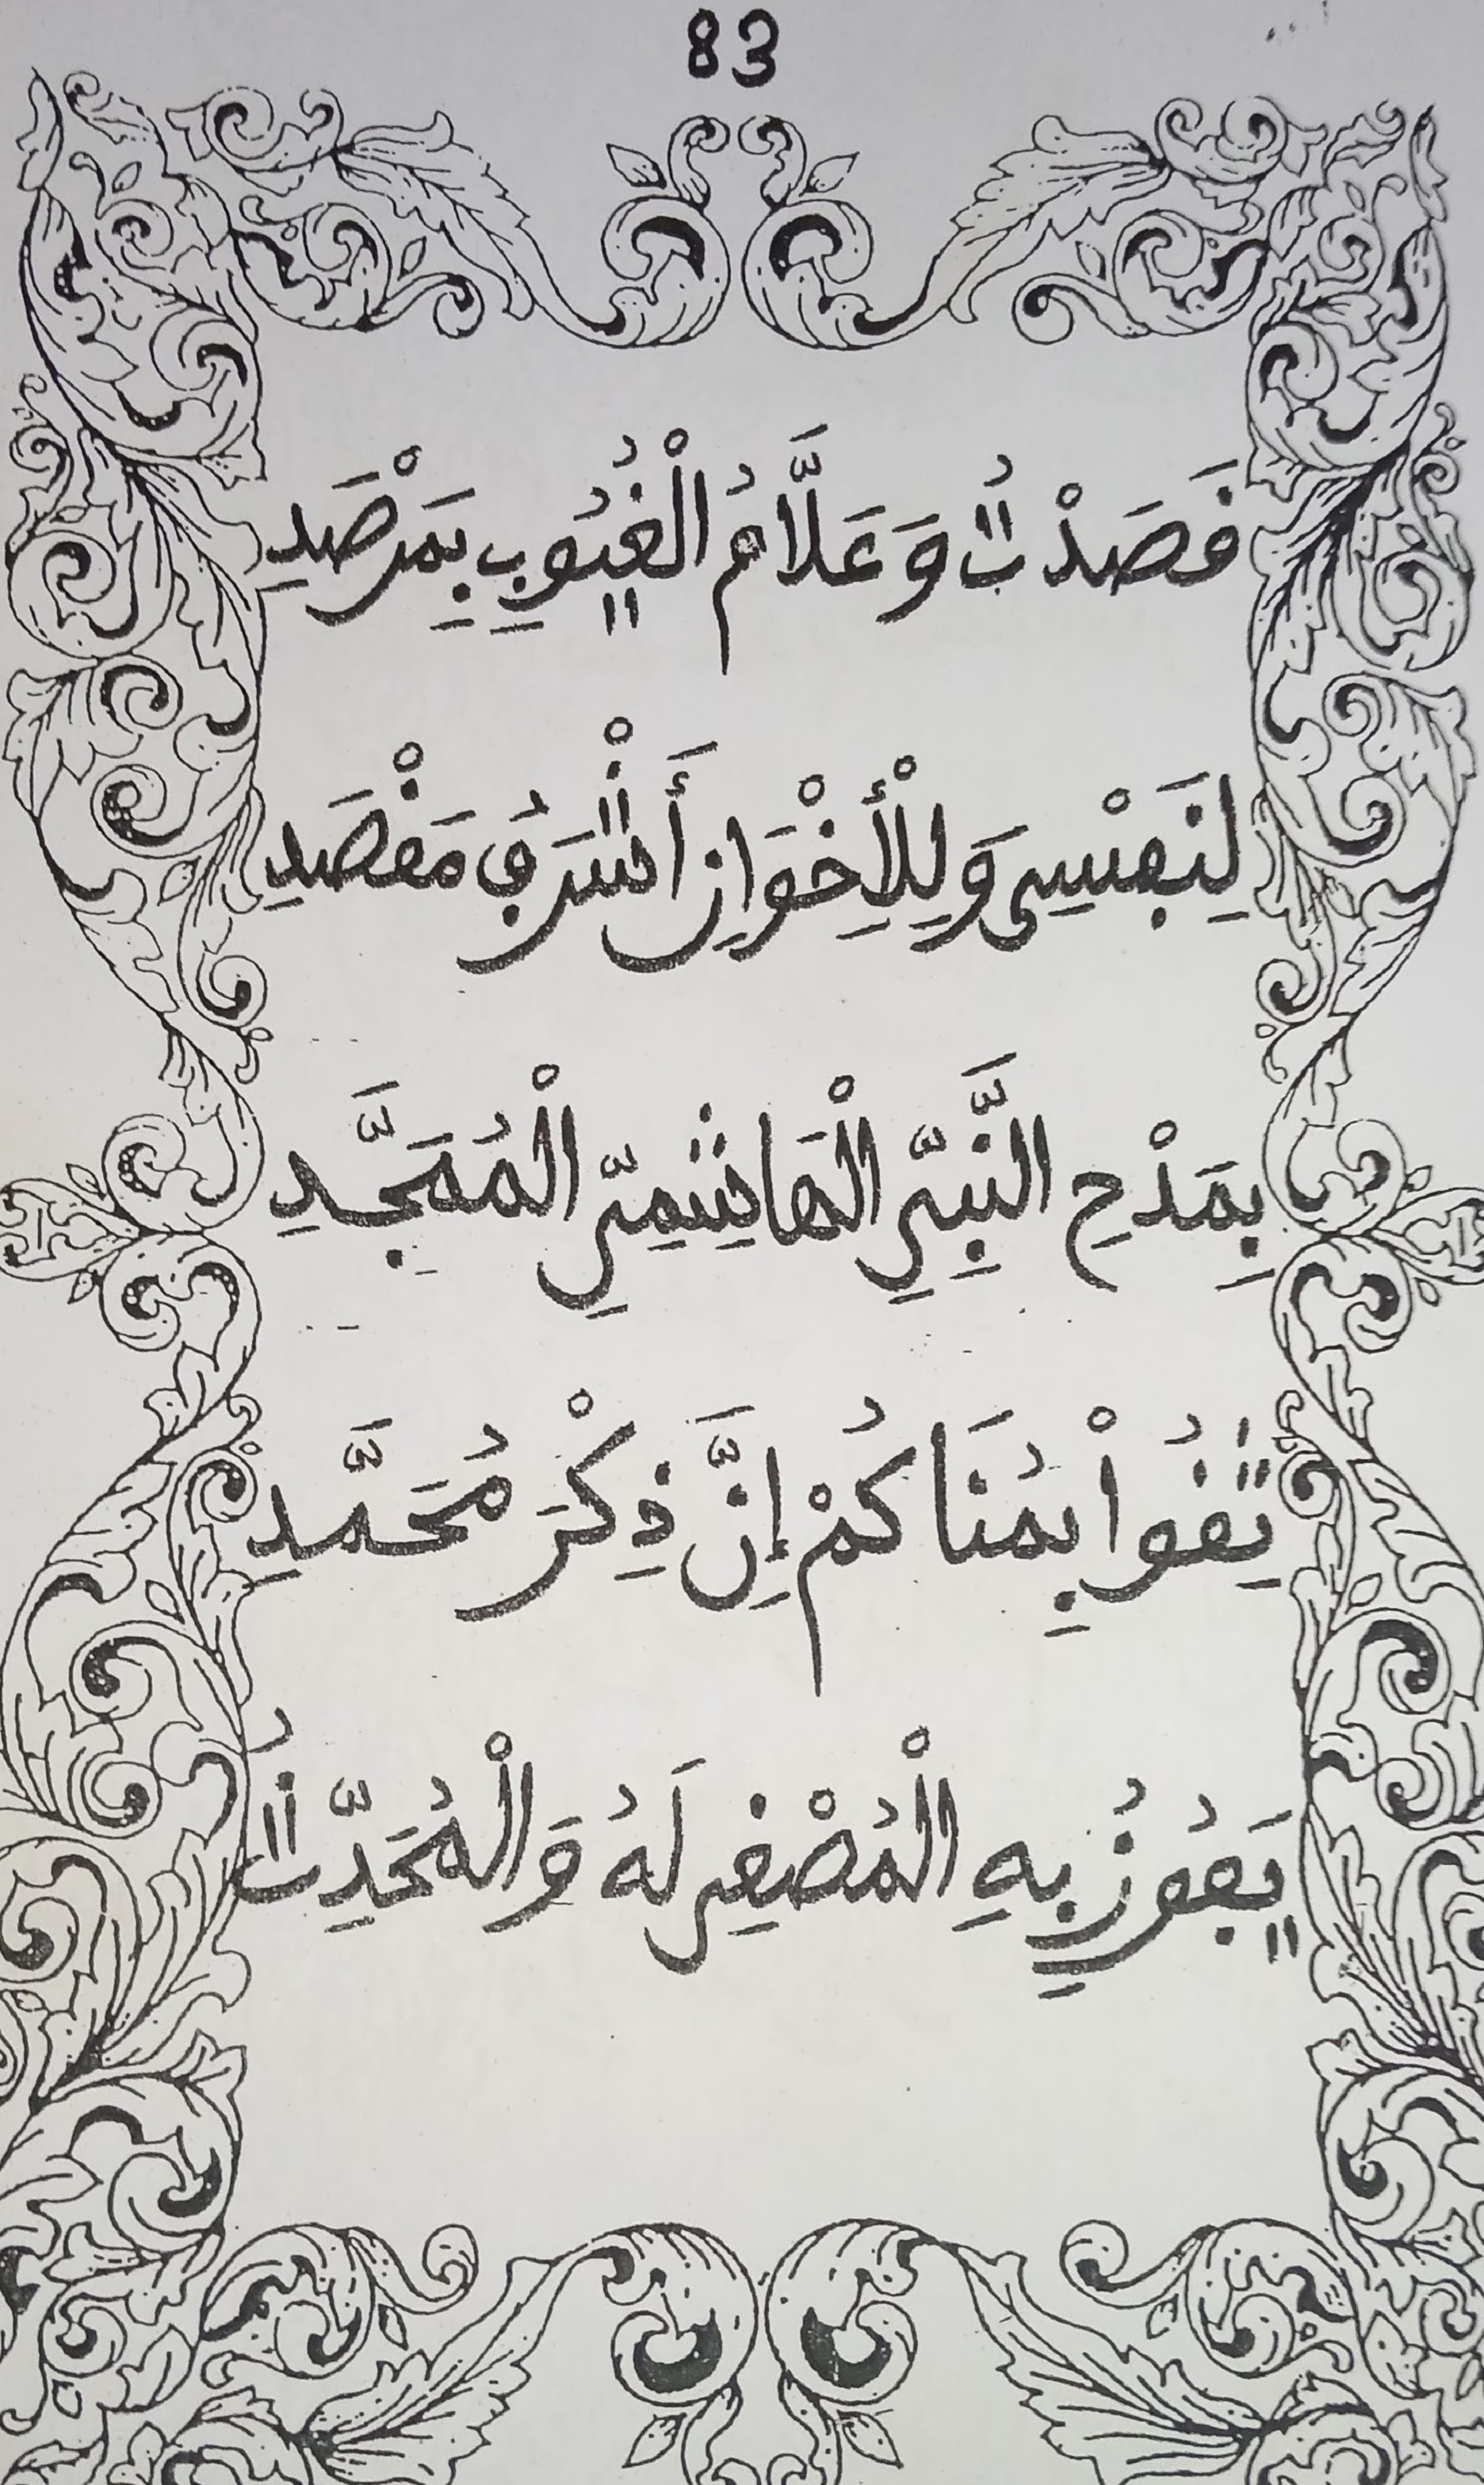 83
قَصَدْتُ وَعَلَّامُ الْغُيُوبِ بِمَرْصَدِ
لِنَفْسِى وَلِلْأِخْوَانِ أَشْرَفَ مَقْصَدِ
بِمَدْحِ النَّبِيِّ الْهَاشِمِيِّ الْمُمَجَّدِ
ثِقُواْ بِمُنَاكُمْ إِنَّ ذِكْرَ مُحَمَّدِ
يَفُوزُ بِهِ الْمُصْغِي لَهُ وَالْمُحَدِّثُ